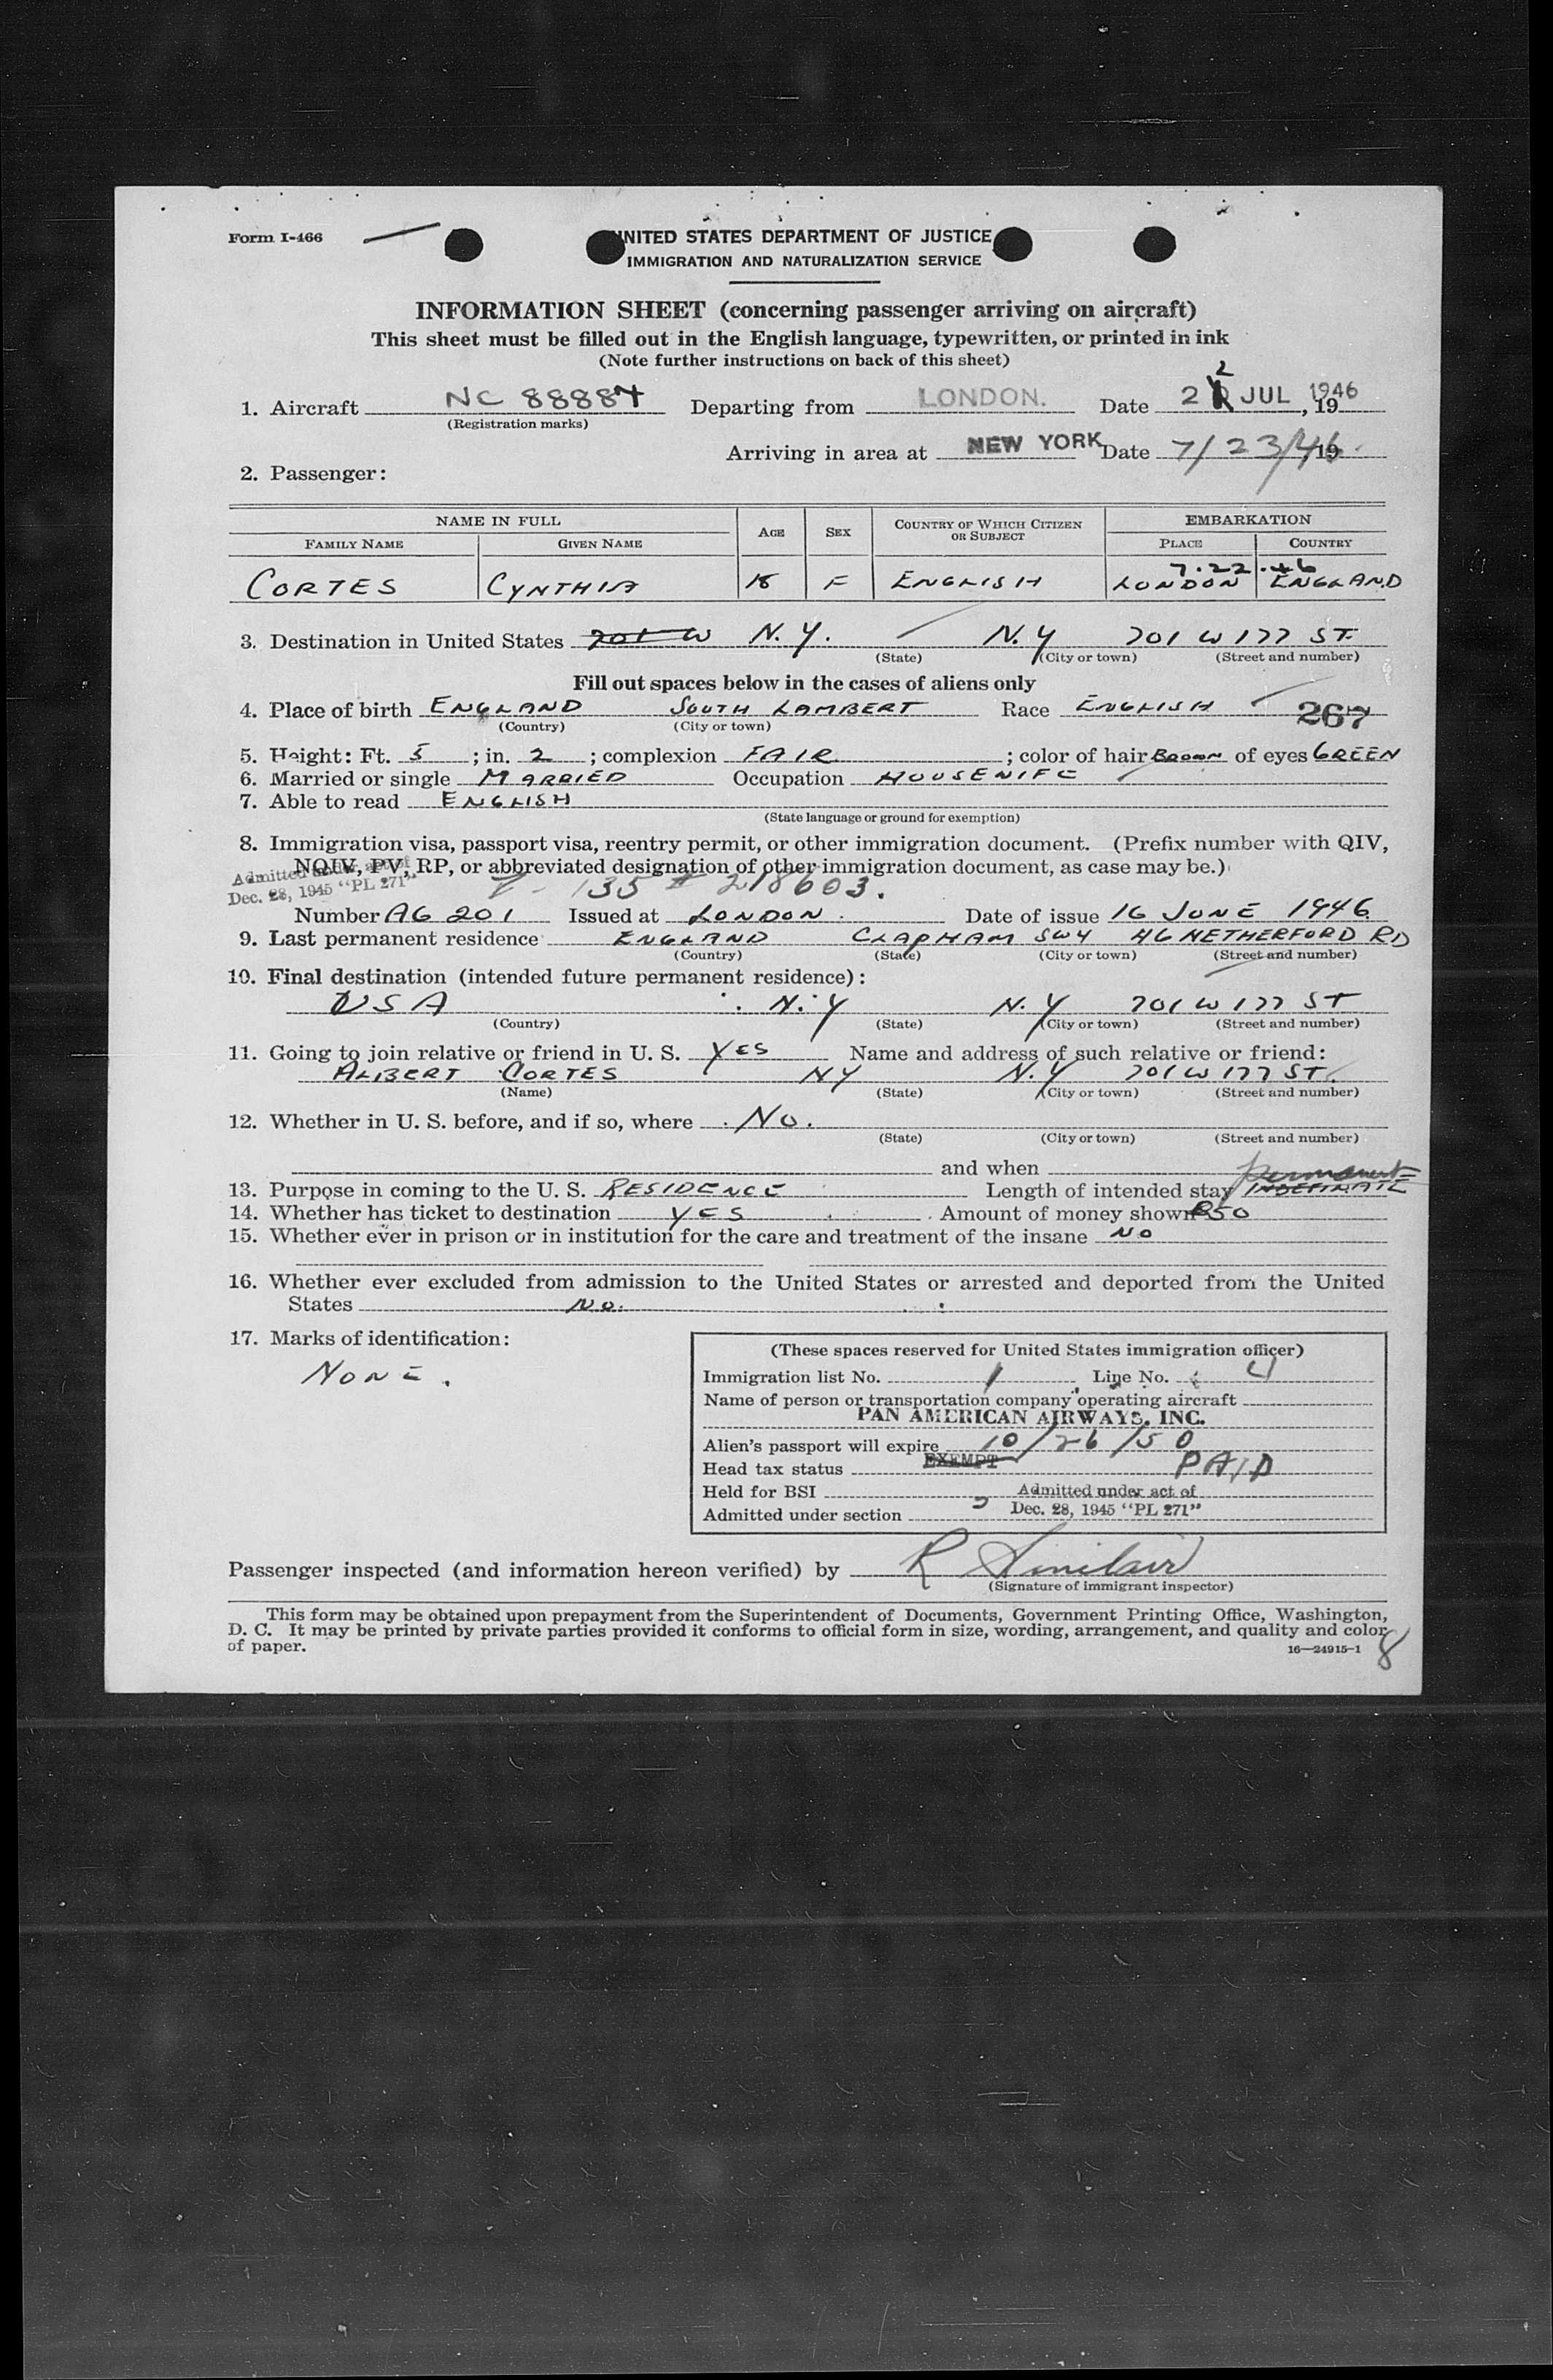 Form I-466
UNITED STATES DEPARTMENT OF JUSTICE
IMMIGRATION AND NATURALIZATION SERVICE
INFORMATION SHEET (concerning passenger arriving on aircraft)
This sheet must be filled out in the English language, typewritten, or printed in ink
(Note further instructions on back of this sheet)
1. Aircraft NC 88884 Departing from LONDON. Date 22 JUL 1946, 19
(Registration marks)
Arriving in area at NEW YORK Date 7/23/46 19
2. Passenger:
NAME IN FULL AGE SEX COUNTRY OF WHICH CITIZEN OR SUBJECT EMBARKATION
FAMILY NAME GIVEN NAME PLACE COUNTRY
7.22.46
CORTES CYNTHIA 18 F ENGLISH LONDON ENGLAND
3. Destination in United States 701 W N.Y. N.Y 701 W 177 ST.
(State) (City or town) (Street and number)
Fill out spaces below in the cases of aliens only
4. Place of birth ENGLAND SOUTH LAMBERT Race ENGLISH 267
(Country) (City or town)
5. Height: Ft. 5 ; in. 2 ; complexion FAIR ; color of hair BROWN of eyes GREEN
6. Married or single MARRIED Occupation HOUSEWIFE
7. Able to read ENGLISH
(State language or ground for exemption)
8. Immigration visa, passport visa, reentry permit, or other immigration document. (Prefix number with QIV,
NQIV, PV, RP, or abbreviated designation of other immigration document, as case may be.)
Admitted under act of
Dec. 28, 1945 "PL 271"
V- 135 # 218603.
Number AG 201 Issued at LONDON. Date of issue 16 JUNE 1946
9. Last permanent residence ENGLAND CLAPHAM SW4 46 NETHERFORD RD
(Country) (State) (City or town) (Street and number)
10. Final destination (intended future permanent residence):
USA N.Y N.Y 701 W 177 ST
(Country) (State) (City or town) (Street and number)
11. Going to join relative or friend in U. S. YES Name and address of such relative or friend:
ALBERT CORTES NY N.Y 701 W 177 ST.
(Name) (State) (City or town) (Street and number)
12. Whether in U. S. before, and if so, where No.
(State) (City or town) (Street and number)
and when
13. Purpose in coming to the U. S. RESIDENCE Length of intended stay permanent INDEFINATE
14. Whether has ticket to destination YES Amount of money shown $50
15. Whether ever in prison or in institution for the care and treatment of the insane NO
16. Whether ever excluded from admission to the United States or arrested and deported from the United
States No.
17. Marks of identification:
NONE.
(These spaces reserved for United States immigration officer)
Immigration list No. 1 Line No. 4
Name of person or transportation company operating aircraft
PAN AMERICAN AIRWAYS, INC.
Alien's passport will expire 10/26/50
Head tax status EXEMPT PAID
Held for BSI Admitted under act of
Admitted under section Dec. 28, 1945 "PL 271"
Passenger inspected (and information hereon verified) by R Sinclair
(Signature of immigrant inspector)
This form may be obtained upon prepayment from the Superintendent of Documents, Government Printing Office, Washington,
D. C. It may be printed by private parties provided it conforms to official form in size, wording, arrangement, and quality and color
of paper.
16—24915-1 8